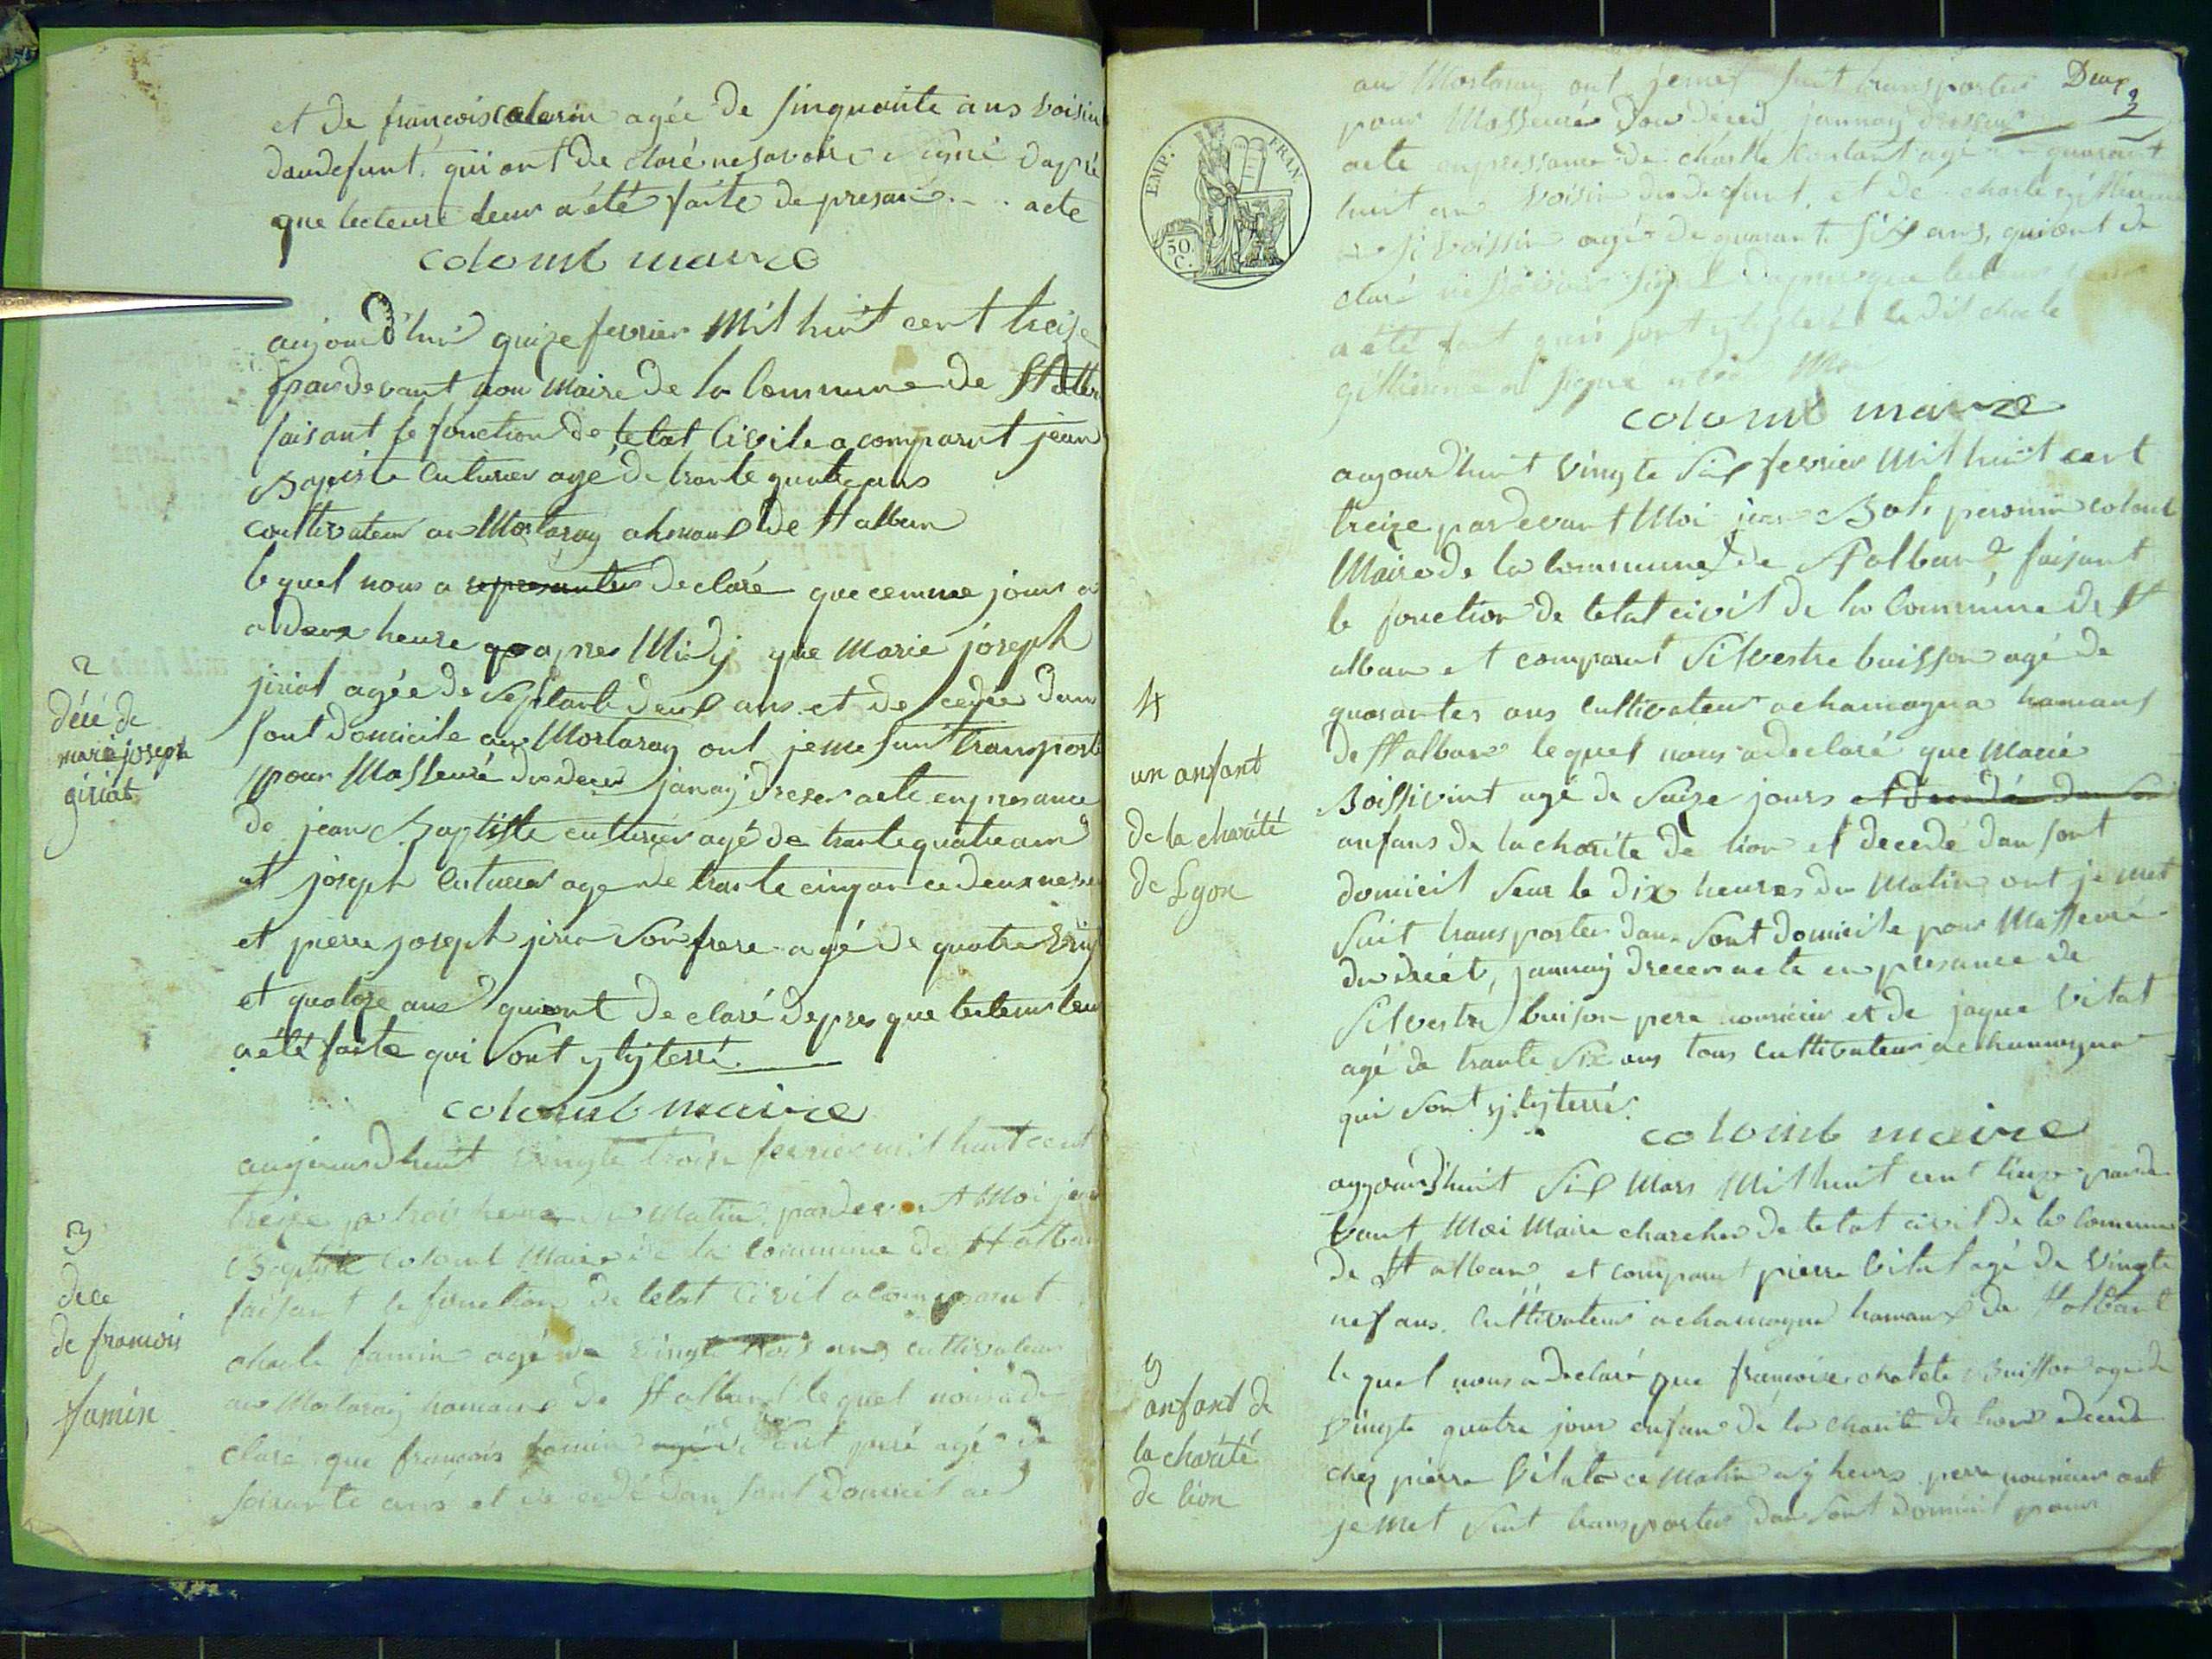 et de francois colonin agée de sinquante ans voisin
dau defunt. qui ont de claré ne savoire Signé daprè
que lecteure leur a été faite de presan - .. acte
colomb maire
aujourd'hui quize fevrier Mil huit cent treize
par devant nou Maire de la Commune de St albn
faisant le fonction de letat Civile a comparut jean
Baptiste Cuturier agé de trante quatre ans
cultivateur au Mortaray ahmaux de St alban
le quel nous a representer declaré que cemme jours a
a deux heure apres Midÿ que Marie joseph
2
décé de
marie joseph
giriat
jiriat agée de Septante deux ans et de cedée dans
sont domicile au Mortaray ont je me suit transporte
pour Masseuré du deces janaÿ dreser acte en presance
de jean Baptiste cuturier agé de trante quatre ans
et joseph Cuturier age de trante cinq an ce deux neveu
et pierre joseph jiria Son frere agé de quatre ving
et quatoze ans qui ont de claré depres que lecteur leur
a été faite qui Sont ylyterré.
colomb maire
aujourdhuit vingte trois fevrier mil huit cent
treize a trois heure du Matin. par devant Moi jean
Baptiste Colomb Maire de la Commune de St alban
3
dece
de francois
famin
faisant le fonction de letat Civil a comparut
charle famin agé de vingte trois ans cultivateur
au Mortaray hamaux de St alban le quel nous a de
claré que francois famin agé de sont peré agé de
soisante ans et de cedé dan sont domicil au
Deux
2
au Mortaray ont je met suit transporter
pour Masseuré dou déced jannaÿ dresser
EMP. FRAN.
50. C.
acte en pressance de charle Contant agé quarant
huit an voisin du defunt, et de charle gillierme
voissin agé de quarante six ans, qui ont de
claré ne savoir signé dapres que lecteur leur
a été fait qui sont ylyterré le dit charle
gillierme a signe avec Moi
colomb maire
aujourd'huit vingte six fevrier Mil huit cent
treize par devant Moi jean Bats peronin colomb
Maire de la Commune de St alban faisant
le fonction de letat civil de la Commune de St
alban et comparut Silvestre buisson agé de
4
un anfant
de la charité
de Lyon
quarantes ans Cultivateur a chamagna hamans
de St alban le quel nous a declaré que Marie
Boissivint agé de Saize jours et decedé dan Son
anfans de la charite de lion et decedé dan sont
domicil seur le dix heures du Matin ont je met
suit transporter dans Sont domicile pour Masseuré
du décét, jannaÿ drecer acte en presance de
Silvestre buison pere nouricier et de jaque Vitat
agé de trante six ans tous Cultivateur a chamagna
qui Sont ylyterré.
colomb maire
aujourdhuit Six Mars Mil huit cent treize parde
vant Moi Maire charcher de letat civil de la Commune
de St alban, et comparut pierre Vital agé de vingte
nef ans. Cultivateur a chamagna hamaux de St alban
5
anfant de
la charité
de lion
le quel nous a declaré que francoise charlote Buisson age de
vingte quatre jour enfan de la charité de lion decedé
chez pierre Vital ce Matin a 9 heurs perre nouricier ont
je met Suit transporter dan sont domicil pour